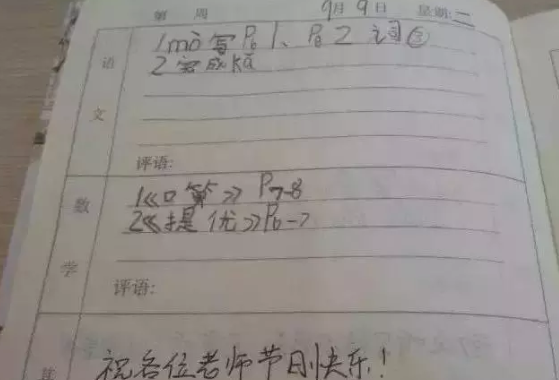 第 周 9月9日 星期:二
语文
1 mò写P6 1、P8 2 词③
2 完成kǎ
评语:
数学
1《口算》P7-8
2《提优》P6-7
评语:
祝各位老师节日快乐!